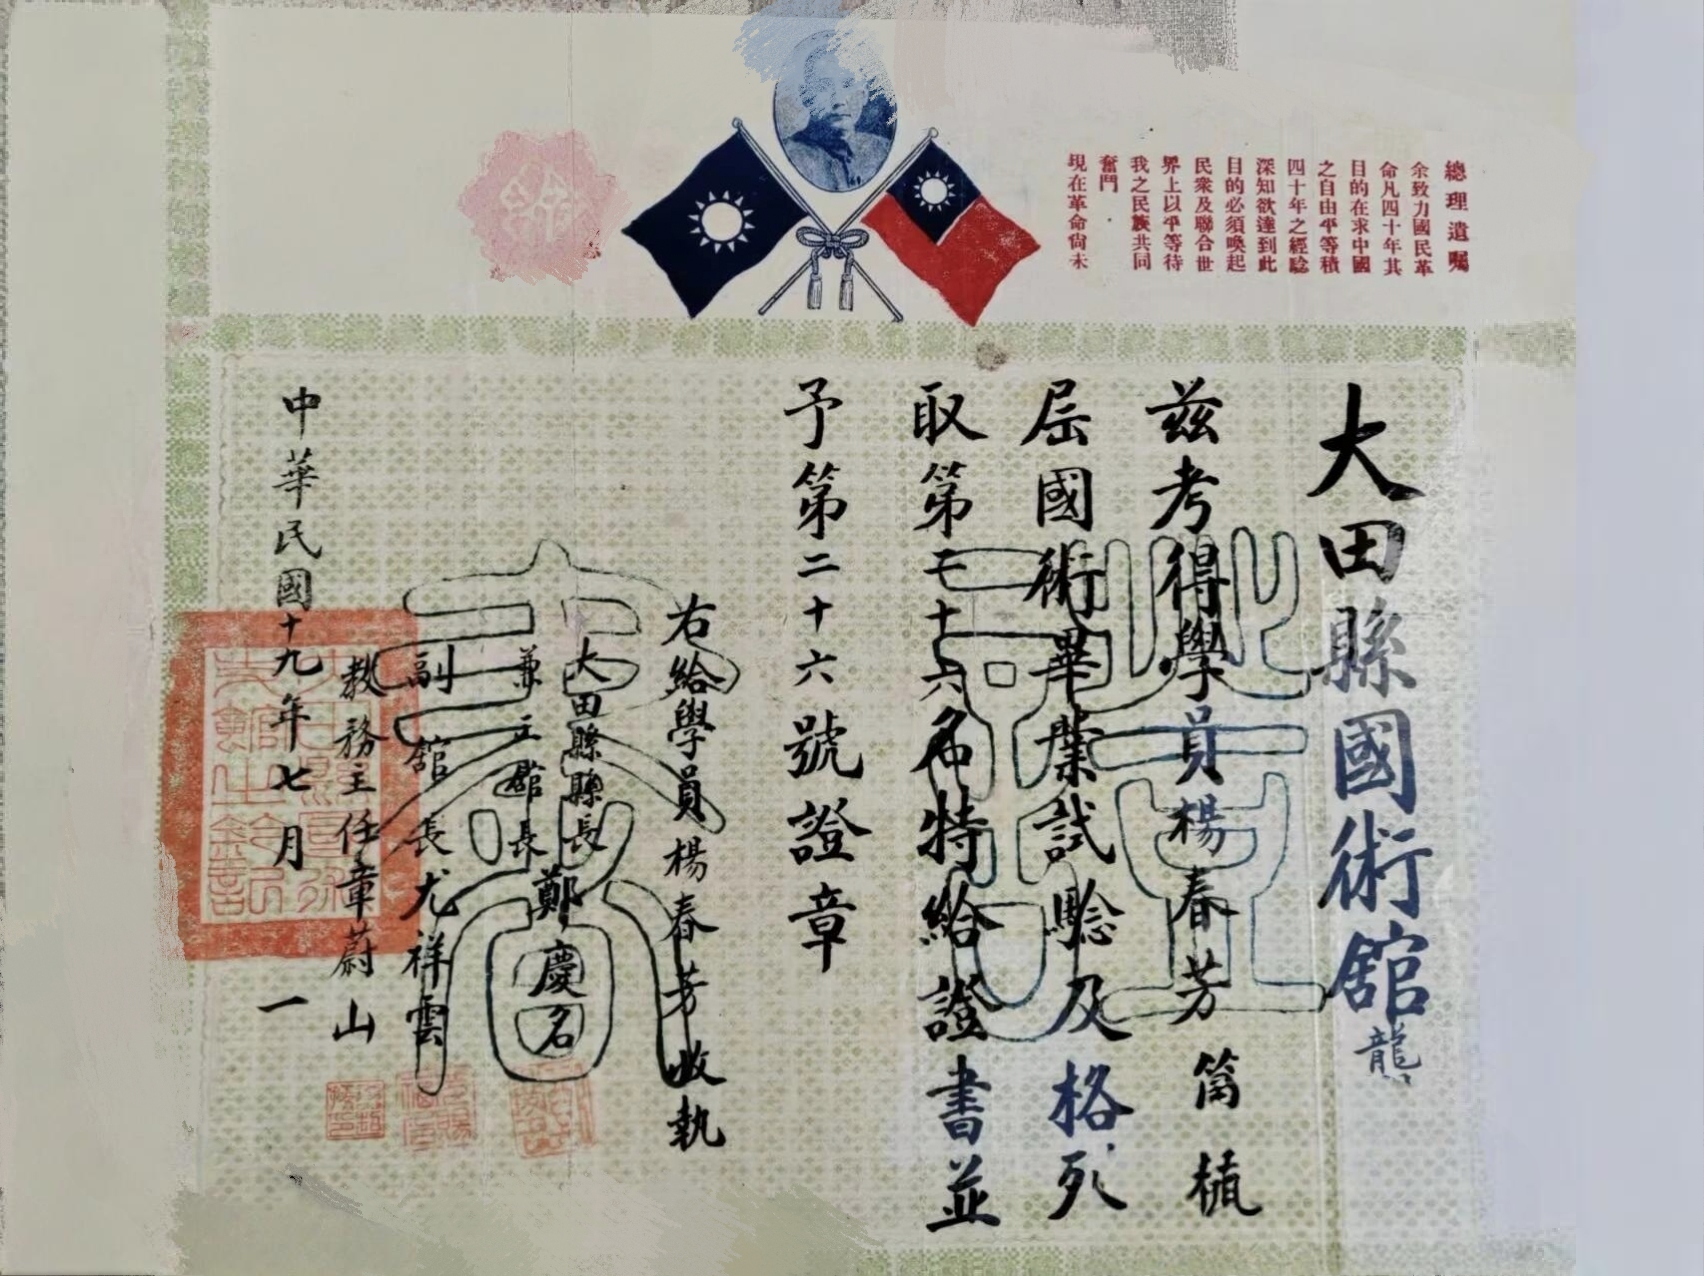 總理遺囑
余致力國民革
命凡四十年其
目的在求中國
之自由平等積
四十年之經驗
深知欲達到此
目的必須喚起
民衆及聯合世
界上以平等待
我之民族共同
奮鬥
現在革命尙未
大田縣國術舘
龍
茲考得學員楊春芳
屆國術畢業試驗及格列
取第二十六名特給證書並
予第二十六號證章
右給學員楊春芳收執
大田縣縣長
兼正舘長 鄭慶名
副舘長尤祥雲
教務主任章蔚山
中華民國十九年七月 一